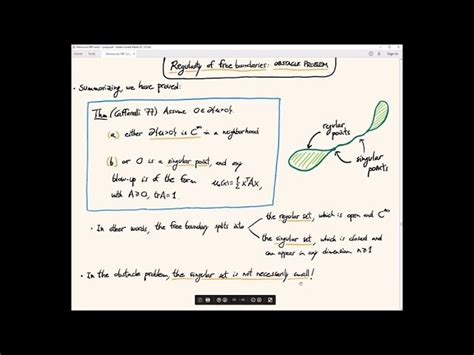 Regularity of free boundaries: OBSTACLE PROBLEM
• Summarizing, we have proved:
Thm (Caffarelli 77) Assume 0∈∂{u>0}.
(a) either ∂{u>0} is C^∞ in a neighborhood
(b) or 0 is a singular point, and any
blow-up is of the form u₀(x)=½xᵀAx,
with A≥0, trA=1.
regular
points
singular
points
• In other words, the free boundary splits into
the regular set, which is open and C^∞
the singular set, which is closed and
can appear in any dimension n≥1
• In the obstacle problem, the singular set is not necessarily small!